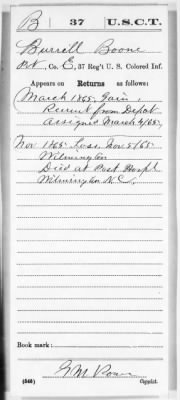 B | 37 | U.S.C.T.
Burrell Boone
Pvt, Co. E, 37 Reg't U. S. Colored Inf.
Appears on Returns as follows:
March 1865, Gain,
Recruit from Depot
Assigned March 4/65.
Nov 1865. Loss. Nov 5/65
Wilmington
Died at Post Hospl
Wilmington N.C.
Book mark:
(546)
Copyist.